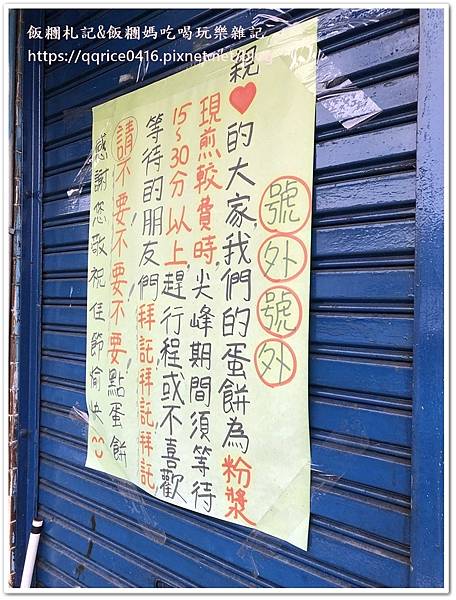 飯糰札記&飯糰媽吃喝玩樂雜記
https://qqrice0416.pixnet.net/blog
號外號外
親❤的大家,我們的蛋餅為粉漿
現煎較費時,尖峰期間須等待
15~30分以上,趕行程或不喜歡
等待的朋友們拜託拜託拜託,
請不要不要不要點蛋餅
感謝您敬祝佳節愉快